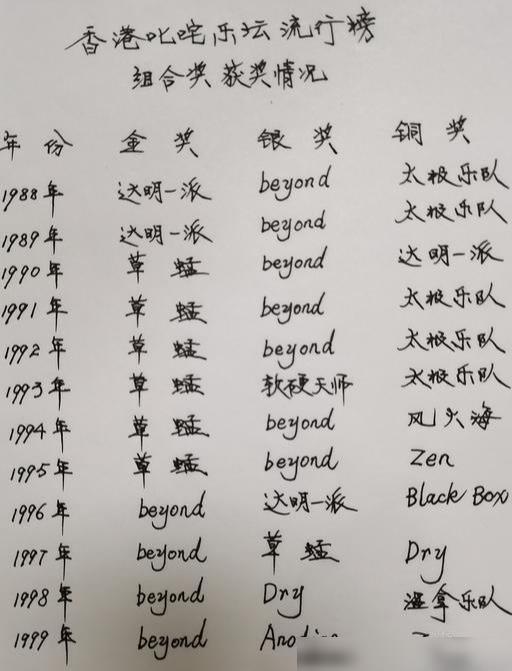 香港叱咤乐坛流行榜
组合奖获奖情况
年份 金奖 银奖 铜奖
1988年 达明一派 beyond 太极乐队
1989年 达明一派 beyond 太极乐队
1990年 草蜢 beyond 达明一派
1991年 草蜢 beyond 太极乐队
1992年 草蜢 beyond 太极乐队
1993年 草蜢 软硬天师 太极乐队
1994年 草蜢 beyond 风火海
1995年 草蜢 beyond Zen
1996年 beyond 达明一派 Black Box
1997年 beyond 草蜢 Dry
1998年 beyond Dry 温拿乐队
1999年 beyond